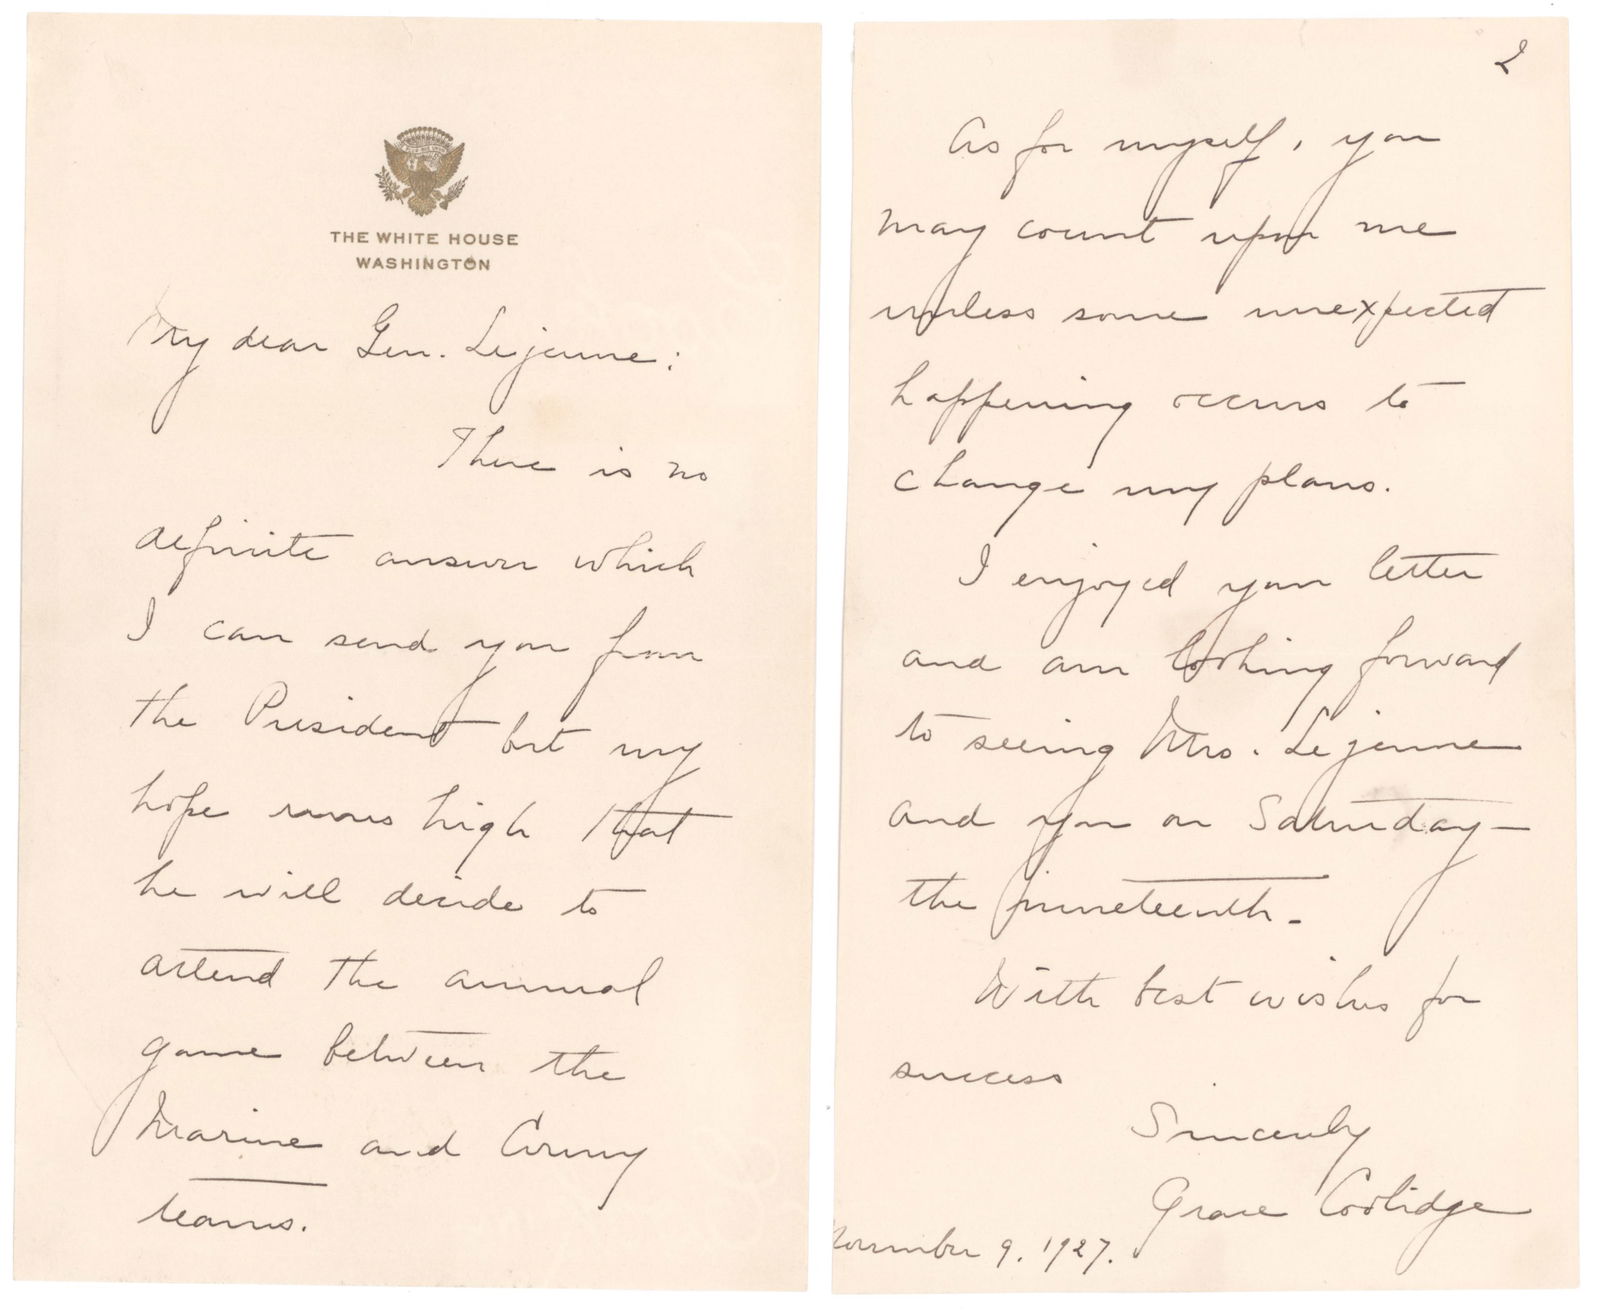 THE WHITE HOUSE
WASHINGTON
My dear Gen. Lejeune:
There is no
definite answer which
I can send you from
the President but my
hope runs high that
he will decide to
attend the annual
game between the
Marine and Army
teams.
2
As for myself, you
may count upon me
unless some unexpected
happening occurs to
change my plans.
I enjoyed your letter
and am looking forward
to seeing Mrs. Lejeune
and you on Saturday—
the nineteenth.
With best wishes for
success
Sincerely
Grace Coolidge
November 9. 1927.